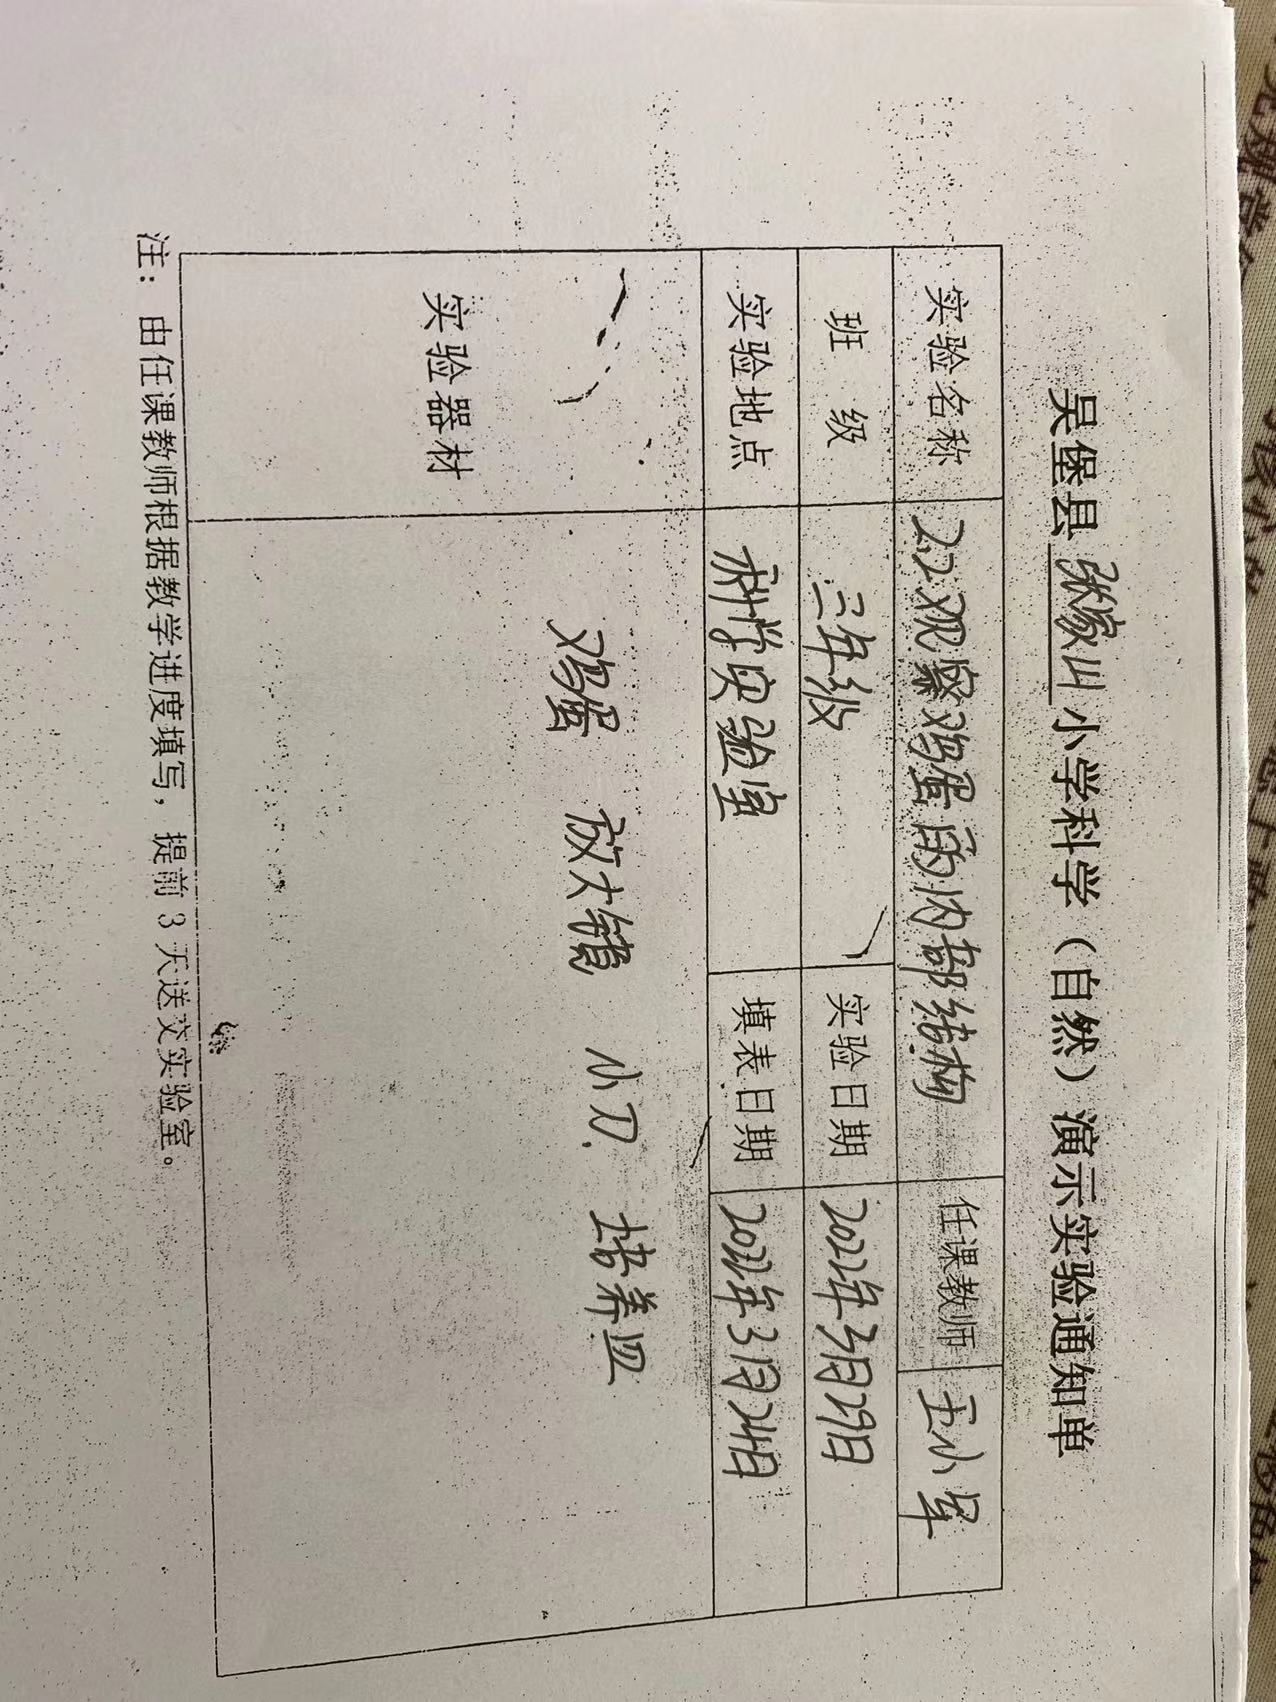 吴堡县张家山小学科学（自然）演示实验通知单
实验名称 2.2观察鸡蛋的内部结构 任课教师 王小军
班 级 三年级 实验日期 2022年3月29日
实验地点 科学实验室 填表日期 2022年3月24日
实验器材 鸡蛋 放大镜 小刀 培养皿
注：由任课教师根据教学进度填写，提前3天送交实验室。